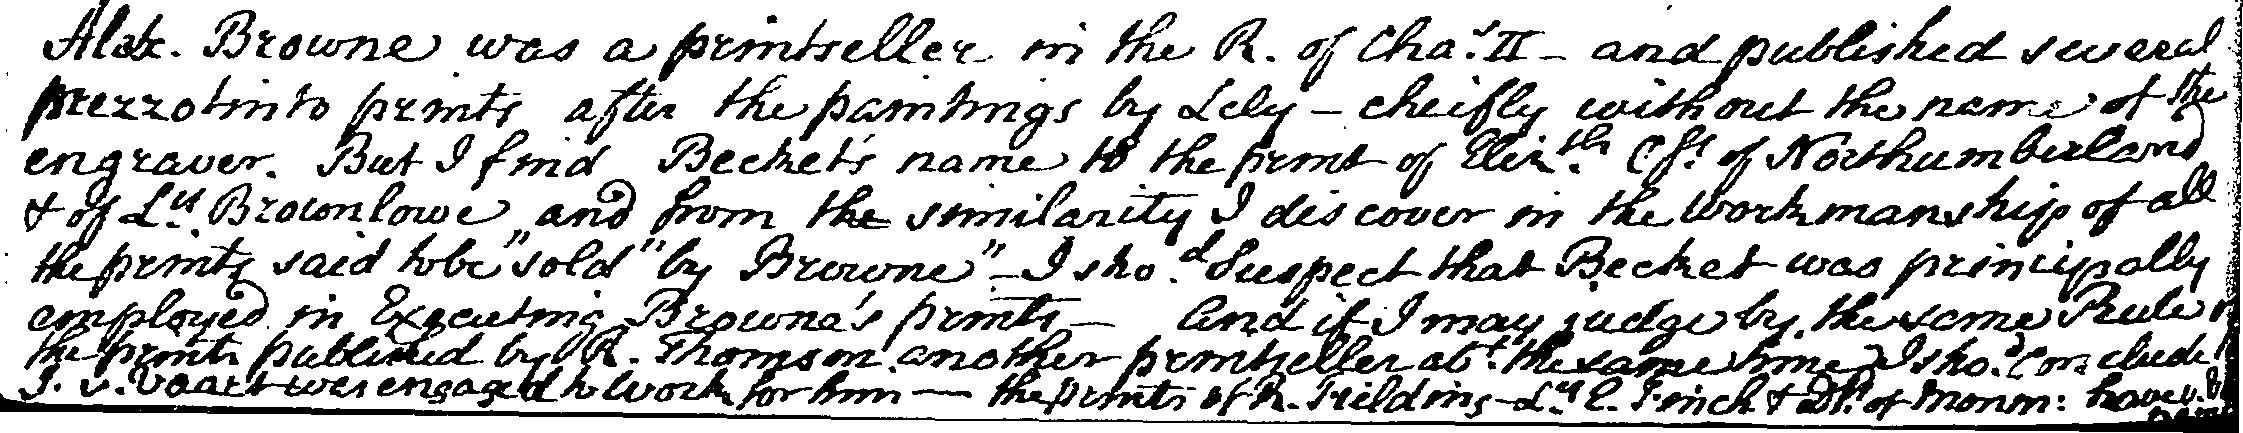 Alex. Browne was a printseller in the R. of Cha.s II - and published several
mezzotinto prints after the paintings by Lely - cheifly without the name of the
engraver. But I find Becket's name to the print of Eliz.th C.ss of Northumberland
& of L.y Brownlowe, and from the similarity I discover in the workmanship of all
the prints said to be "sold" by Browne" - I sho.d Suspect that Becket was principally
employed in Executing Browne's prints - And if I may judge by the same Rule
the prints published by R. Thomson another printseller ab.t the same time I sho.d Conclude
J. v. Vaart was engaged to Work for him — the prints of R. Fielding - L.y E. Finch & D.s of Monm: have v.